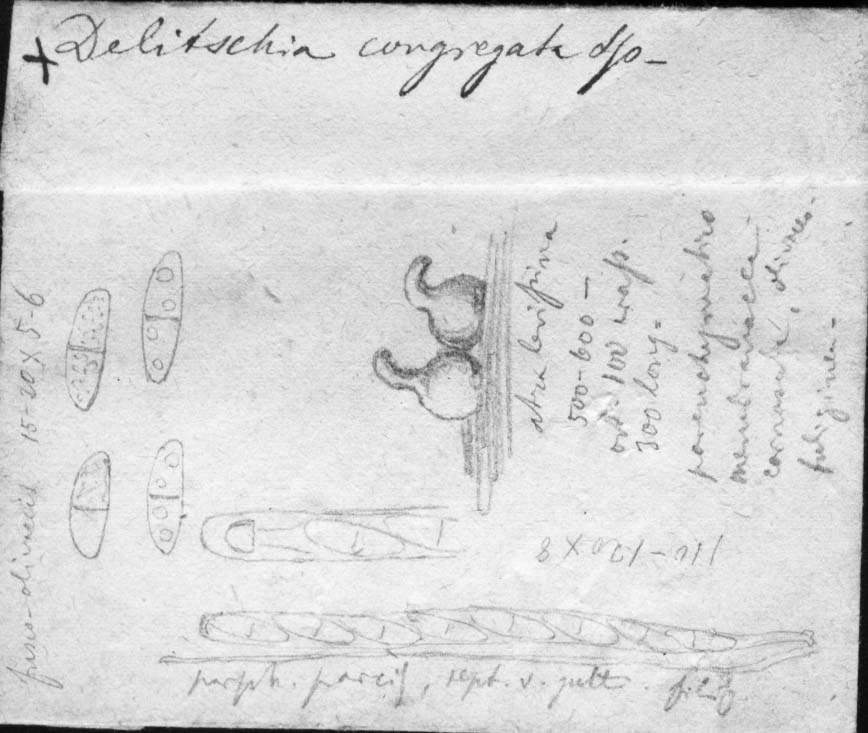 + Delitschia congregata Sp-
fusco-olivaceis 15-20 X 5-6
atra laevissima
500-600 -
ost. 100 crass.
300 long.
parenchymatico
membranacea
carnosula, olivaceo-
fuliginea-
110-120 X 8
paraph. parcis, sept. v. gutt. filif.